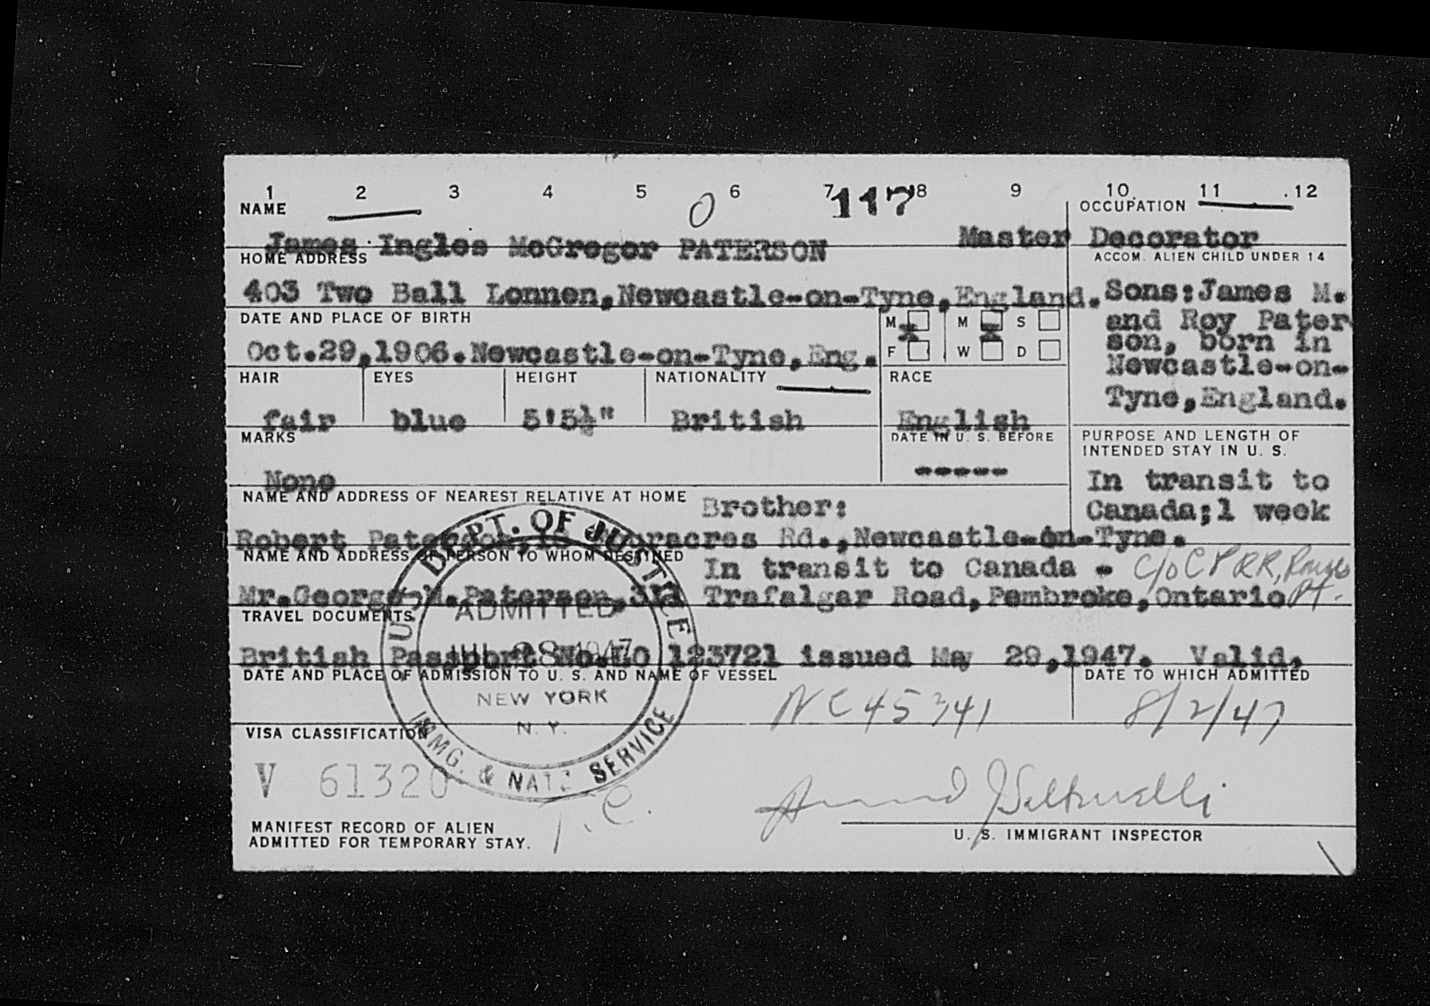 1 2 3 4 5 0 6 7 117 8 9 10 11 12
NAME OCCUPATION
James Ingles McGregor PATERSON Master Decorator
HOME ADDRESS ACCOM. ALIEN CHILD UNDER 14
403 Two Ball Lonnen, Newcastle-on-Tyne, England. Sons: James M.
and Roy Pater
son, born in
Newcastle-on-
Tyne, England.
DATE AND PLACE OF BIRTH M M S
Oct. 29, 1906. Newcastle-on-Tyne, Eng. F W D
HAIR EYES HEIGHT NATIONALITY RACE
fair blue 5'5½" British English
MARKS DATE IN U. S. BEFORE PURPOSE AND LENGTH OF
INTENDED STAY IN U. S.
None ----- In transit to
Canada; 1 week
NAME AND ADDRESS OF NEAREST RELATIVE AT HOME Brother:
Robert Paterson, Rd., Newcastle-on-Tyne.
NAME AND ADDRESS OF PERSON TO WHOM DESTINED
In transit to Canada - c/o C P RR,
Mr. George M. Paterson, 311 Trafalgar Road, Pembroke, Ontario Pt.
TRAVEL DOCUMENTS
British Passport No. LO 123721 issued May 29, 1947. Valid,
DATE AND PLACE OF ADMISSION TO U. S. AND NAME OF VESSEL DATE TO WHICH ADMITTED
NC 45341 8/2/47
U. S. DEPT. OF JUSTICE
ADMITTED
JUL 28 1947
NEW YORK
N. Y.
IMMG. & NATZ. SERVICE
VISA CLASSIFICATION
V 61320
T.C.
MANIFEST RECORD OF ALIEN
ADMITTED FOR TEMPORARY STAY.
U. S. IMMIGRANT INSPECTOR